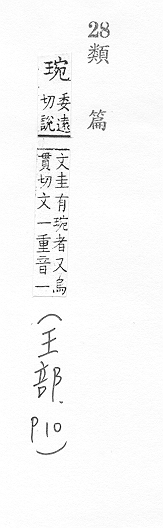 28
類篇
琬
委遠
切說
文圭有琬者又烏
貫切文一重音一
(王部.
P10)